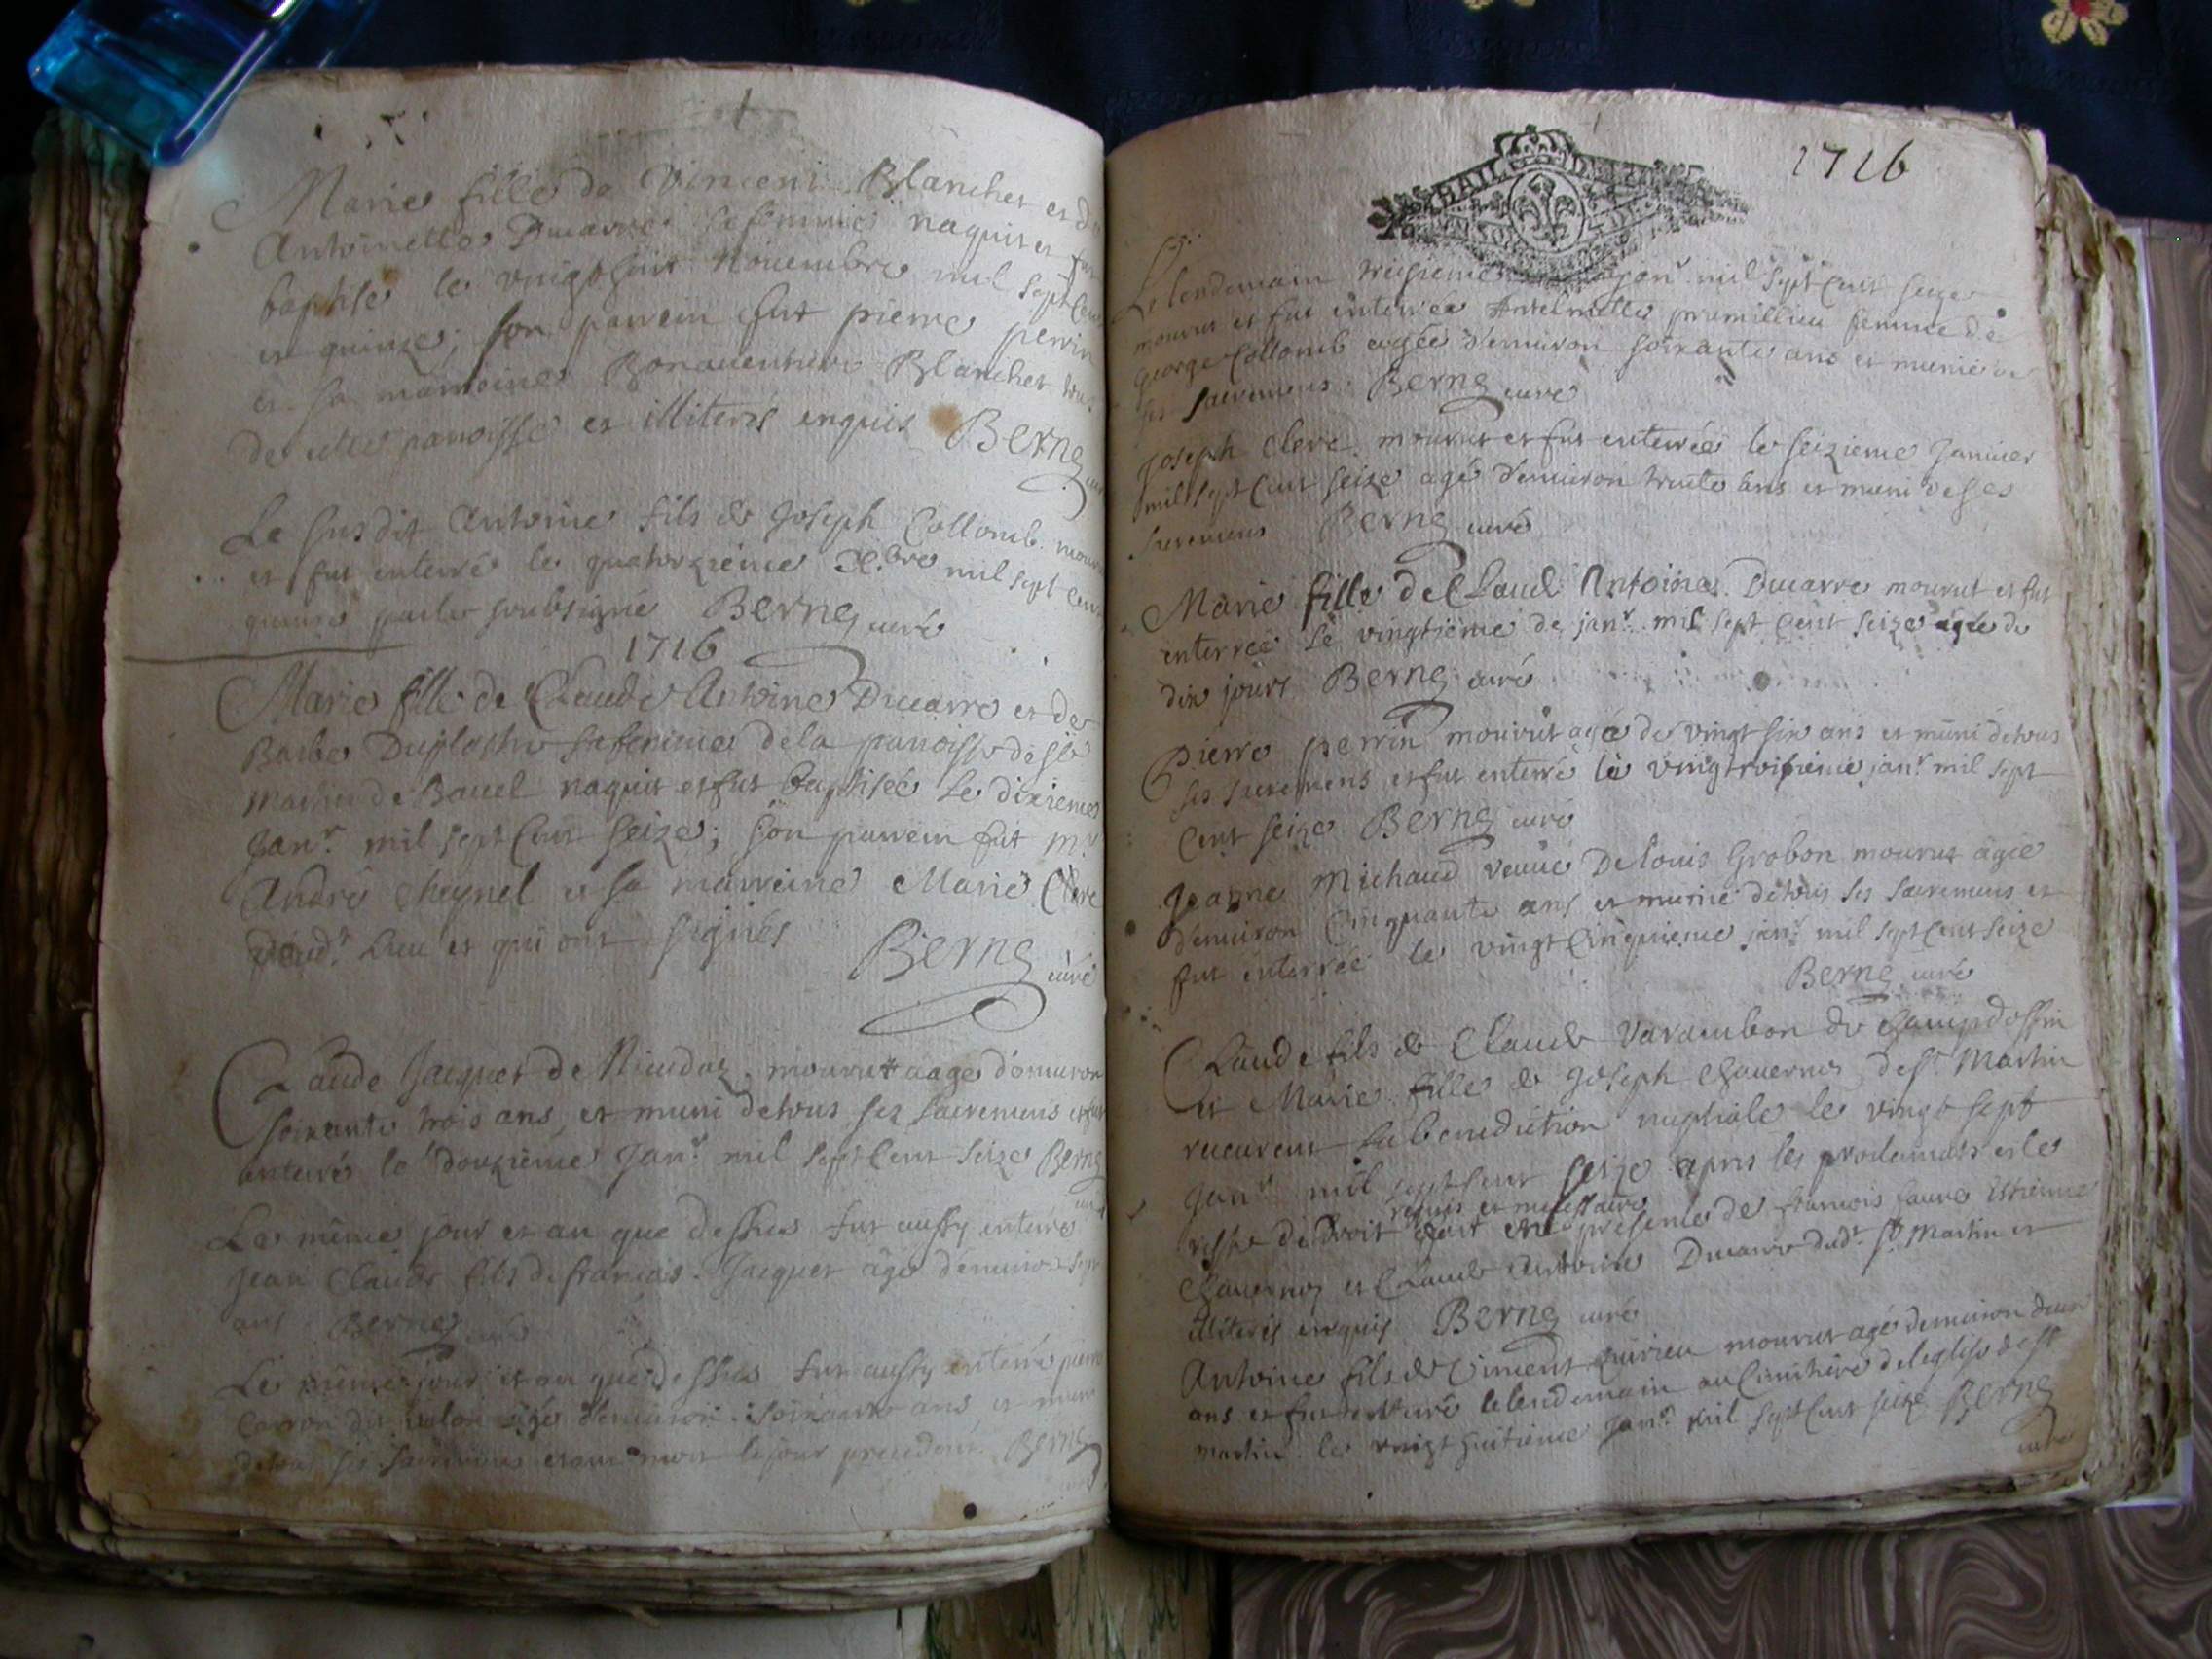 Marie fille de Vincent Blanchet et de
Antoinette Ducarre sa femme naquit et fut
baptisé le vingt huit Novembre mil sept cent
et quinze; son parrein fut pierre perrin
et sa marreine Bonaventure Blanchet tous
de cette paroisse et illiterés enquis Berne curé
Le susdit Antoine fils de Joseph Collomb mourut
et fut enterré le quatorzieme Xbre mil sept cent
quinze par le soubsigné Berne curé
1716
Marie fille de Claude Antoine Ducarre et de
Barbe Duplastre sa femme de la paroisse de St
Martin de Bavel naquit et fut baptisée le dixieme
Janr mil sept cent seize; son parrein fut Mr
André Cheynel et sa marreine Marie Clerc
dud. Lieu et qui ont signés
Berne curé
Claude Jacquet de mourut aagé d'environ
soixante trois ans, et muni de tous ses sacremens et fut
enterré le douzième Janr mil sept cent seize Berne
curé
Le même jour et an que dessus fut aussy enterré
Jean Claude fils de francois Jacquet agé d'environ sept
ans Berne curé
Le même jour et an que dessus fut aussy enterré pierre
Carron dit agé d'environ soixante ans et muni
de tous ses sacremens mort le jour precedent Berne
curé
1716
BAIL
Le lendemain treisieme janr mil sept cent seize
mourut et fut enterrée Antelmette premillieu femme de
George Collomb agée d'environ soixante ans et munie de
ses sacremens Berne curé
Joseph Clerc mourut et fut enterrée le seizieme Janvier
mil sept cent seize agé d'environ trente ans et muni de ses
sacremens Berne curé
Marie fille de Claude Antoine Ducarre mourut et fut
enterrée le vingtième de janr mil sept cent seize agée de
dix jours Berne curé
Pierre perrin mourut agé de vingt six ans et muni de tous
ses sacremens et fut enterré le vingtroisieme janr mil sept
cent seize Berne curé
Jeanne Michaud veuve De louis Grobon mourut agée
d'environ cinquante ans et munie de tous ses sacremens et
fut enterrée le vingt cinquieme janr mil sept cent seize
Berne curé
Claude fils de Claude Varambon de Champdossin
et Marie fille de Joseph Chavernoz de St Martin
receurent la benediction nuptiale le vingt sept
Janr mil sept cent seize apres les proclamations et le
requis et necessaire
reste de droit en presence de francois faure Estienne
Chavernoz et Claude Antoine Ducarre dudt St Martin et
illiterés enquis Berne curé
Antoine fils de Vincent mourut agé d'environ deux
ans et fut enterré le lendemain au cimitière de l'eglise de St
Martin le vingt huitieme Janr mil sept cent seize Berne
curé